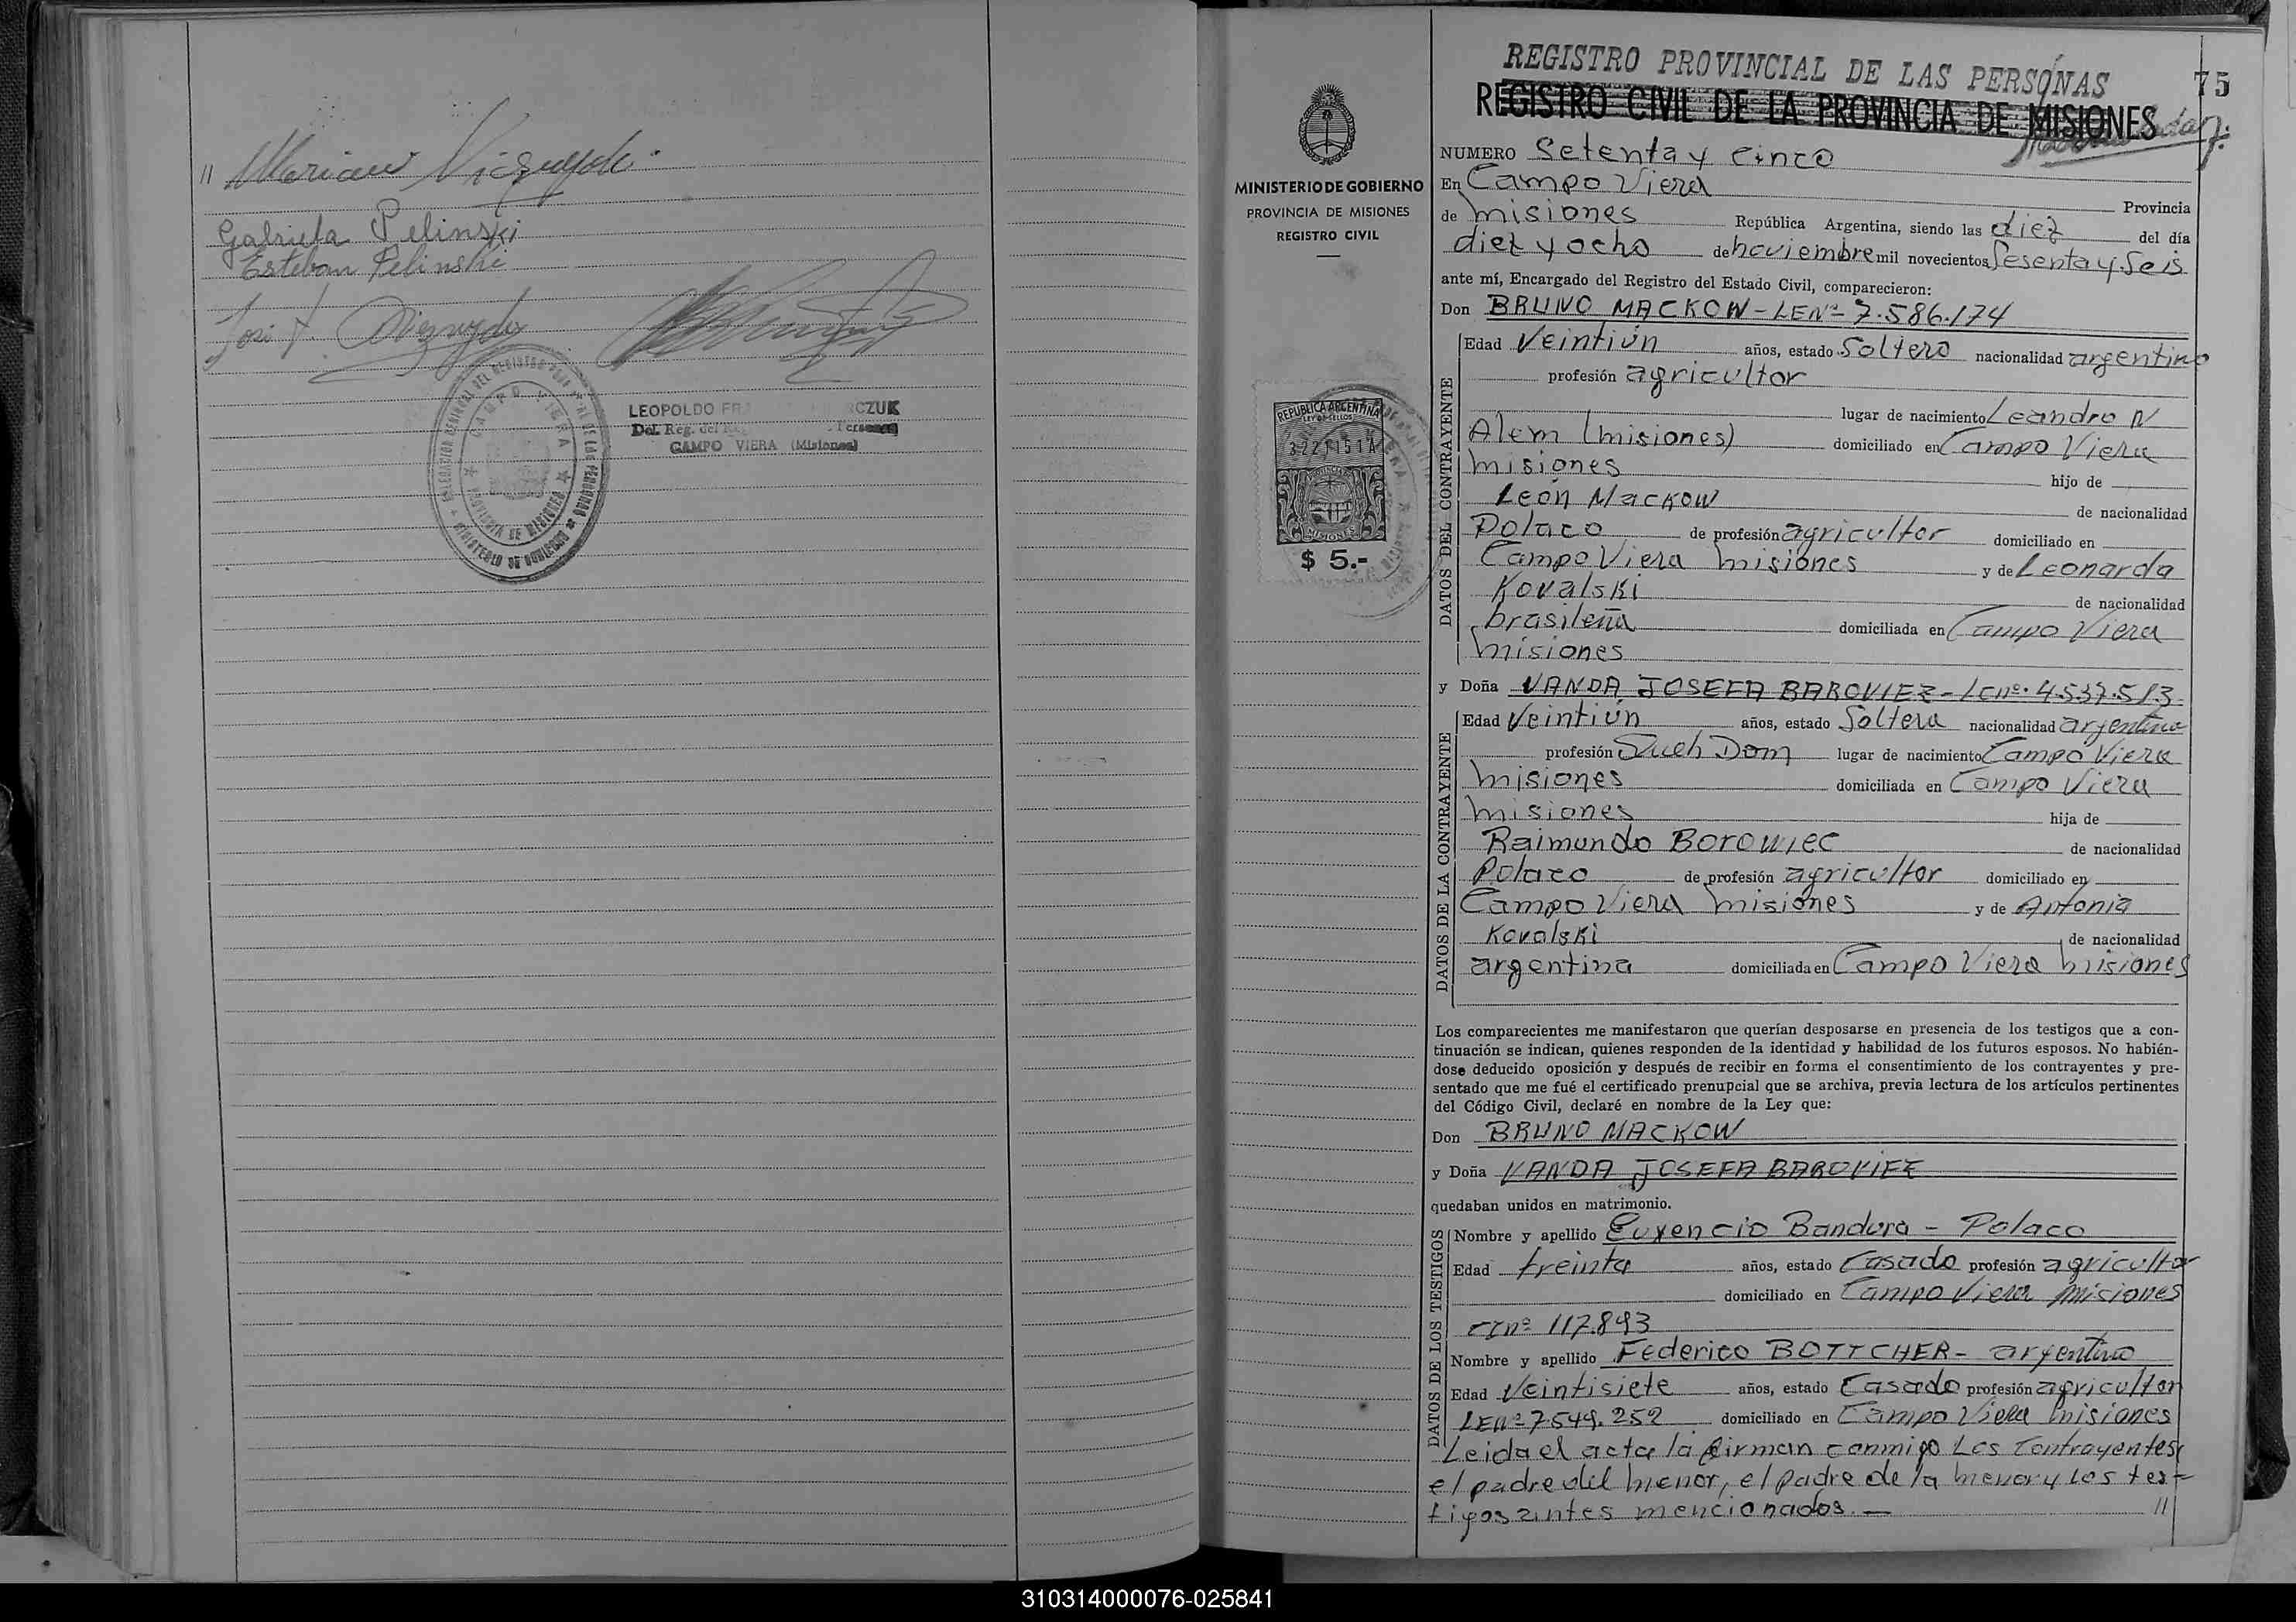 Gabriela Pelinski
Esteban Pelinski
José
LEOPOLDO
Del. Reg. del
CAMPO VIERA (Misiones)
CAMPO VIERA
PROVINCIA DE MISIONES
MINISTERIO DE GOBIERNO
REGISTRO PROVINCIAL DE LAS PERSONAS
75
REGISTRO CIVIL DE LA PROVINCIA DE MISIONES
MINISTERIO DE GOBIERNO
PROVINCIA DE MISIONES
REGISTRO CIVIL
REPUBLICA ARGENTINA
LEY DE SELLOS
MISIONES
$ 5.-
NUMERO Setenta y cinco
En Campo Viera Provincia
de misiones República Argentina, siendo las diez del día
diez y ocho de noviembre mil novecientos sesenta y seis
ante mí, Encargado del Registro del Estado Civil, comparecieron:
Don BRUNO MACKOW - LENº 7.586.174
DATOS DEL CONTRAYENTE
Edad Veintiún años, estado Soltero nacionalidad argentino
profesión agricultor
lugar de nacimiento Leandro N
Alem (misiones) domiciliado en Campo Viera
misiones hijo de
León Mackow de nacionalidad
Polaco de profesión agricultor domiciliado en
Campo Viera misiones y de Leonarda
Kovalski de nacionalidad
brasileña domiciliada en Campo Viera
misiones
y Doña VANDA JOSEFA BAROVIEZ - Lcnº. 4.537.513
DATOS DE LA CONTRAYENTE
Edad Veintiún años, estado Soltera nacionalidad argentina
profesión Queh Dom lugar de nacimiento Campo Viera
misiones domiciliada en Campo Viera
misiones hija de
Raimundo Borowiec de nacionalidad
Polaco de profesión agricultor domiciliado en
Campo Viera misiones y de Antonia
Kovalski de nacionalidad
argentina domiciliada en Campo Viera misiones
Los comparecientes me manifestaron que querían desposarse en presencia de los testigos que a con-
tinuación se indican, quienes responden de la identidad y habilidad de los futuros esposos. No habién-
dose deducido oposición y después de recibir en forma el consentimiento de los contrayentes y pre-
sentado que me fué el certificado prenupcial que se archiva, previa lectura de los artículos pertinentes
del Código Civil, declaré en nombre de la Ley que:
Don BRUNO MACKOW
y Doña VANDA JOSEFA BAROVIEZ
quedaban unidos en matrimonio.
DATOS DE LOS TESTIGOS
Nombre y apellido Euxencio Bandura - Polaco
Edad treinta años, estado Casado profesión agricultor
domiciliado en Campo Viera misiones
CInº 117.893
Nombre y apellido Federico BOTTCHER - argentino
Edad Veintisiete años, estado Casado profesión agricultor
LENº 7.549.252 domiciliado en Campo Viera misiones
Leida el acta la firman conmigo los contrayentes,
el padre del menor, el padre de la menor y los tes-
tigos antes mencionados. — //
310314000076-025841